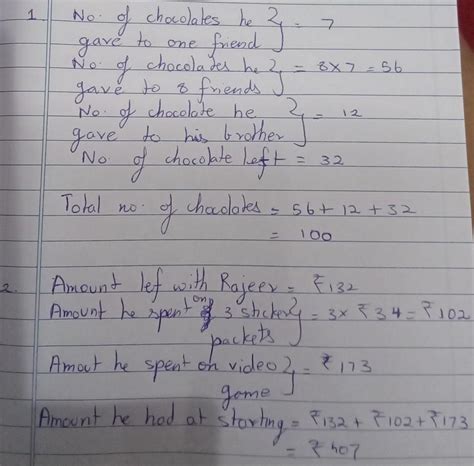 1. No. of chocolates he } = 7
gave to one friend
No. of chocolates he } = 8x7 = 56
gave to 8 friends
No. of chocolate he } = 12
gave to his brother
No of chocolate left = 32
Total no. of chocolates = 56 + 12 + 32
= 100
2. Amount lef with Rajeev = ₹132
Amount he spent on 3 sticker } = 3x ₹34 = ₹102
packets
Amout he spent on video } = ₹173
game
Amount he had at starting = ₹132 + ₹102 + ₹173
= ₹407